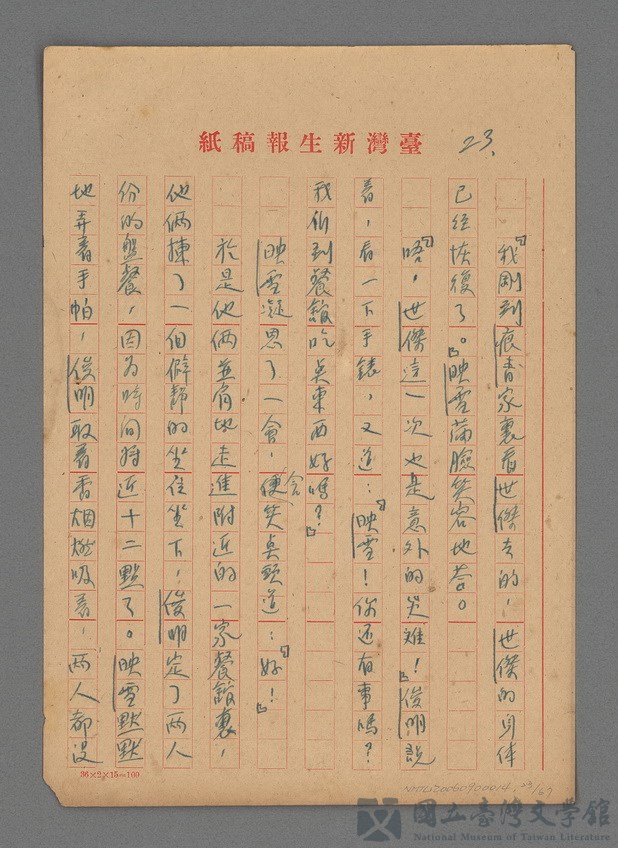 紙稿報生新灣臺
23.
「我剛到痕青家裏看世傑去的,世傑的身体
已經恢復了。」映雪滿臉笑容地答。
「唔,世傑這一次也是意外的災難!」俊明說
着,看一下手錶,又道:「映雪!你还有事嗎?
我们到餐舘吃点東西好嗎?」
映雪凝思了一會,便含笑点頭道:「好!」
於是他俩並肩地走進附近的一家餐舘裏,
他俩揀了一個僻靜的坐位坐下,俊明定了两人
份的盤餐,因為時间将近十二點了。映雪默默
地弄着手帕,俊明取着香烟燃吸着,两人都没
36×2×15=100
NMTL20060900014 23/67
國立臺灣文學館
National Museum of Taiwan Literature